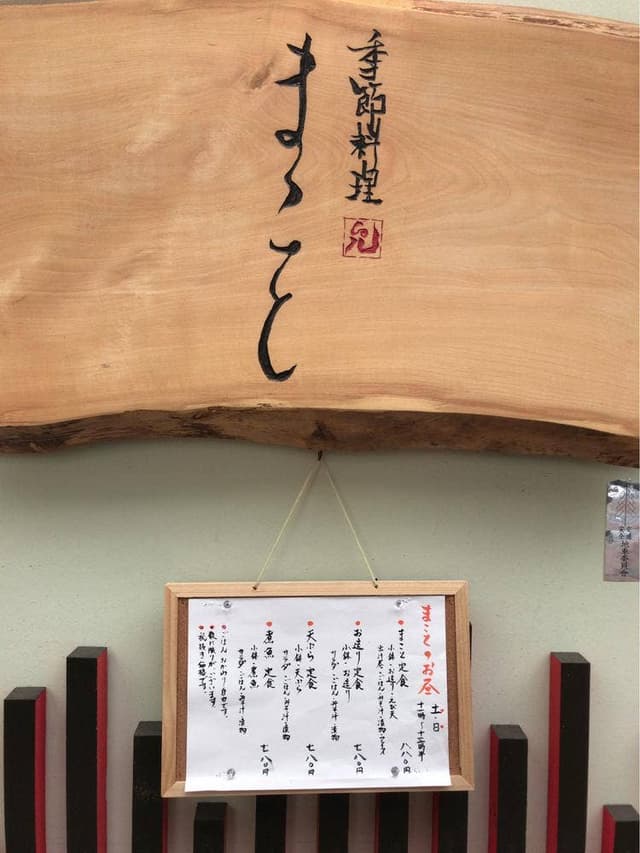 季節料理
まこと
まことのお昼
土・日
十一時〜十三時半
まこと定食
八八〇円
小鉢・お造り・えび天
ごはん・みそ汁・漬物
お造り定食
七八〇円
小鉢・お造り
サラダ・ごはん・みそ汁・漬物
天ぷら定食
七八〇円
小鉢・天ぷら
サラダ・ごはん・みそ汁・漬物
煮魚定食
七八〇円
小鉢・煮魚
サラダ・ごはん・みそ汁・漬物
ごはんおかわり自由です。
数に限りがございます
税抜き価格です。